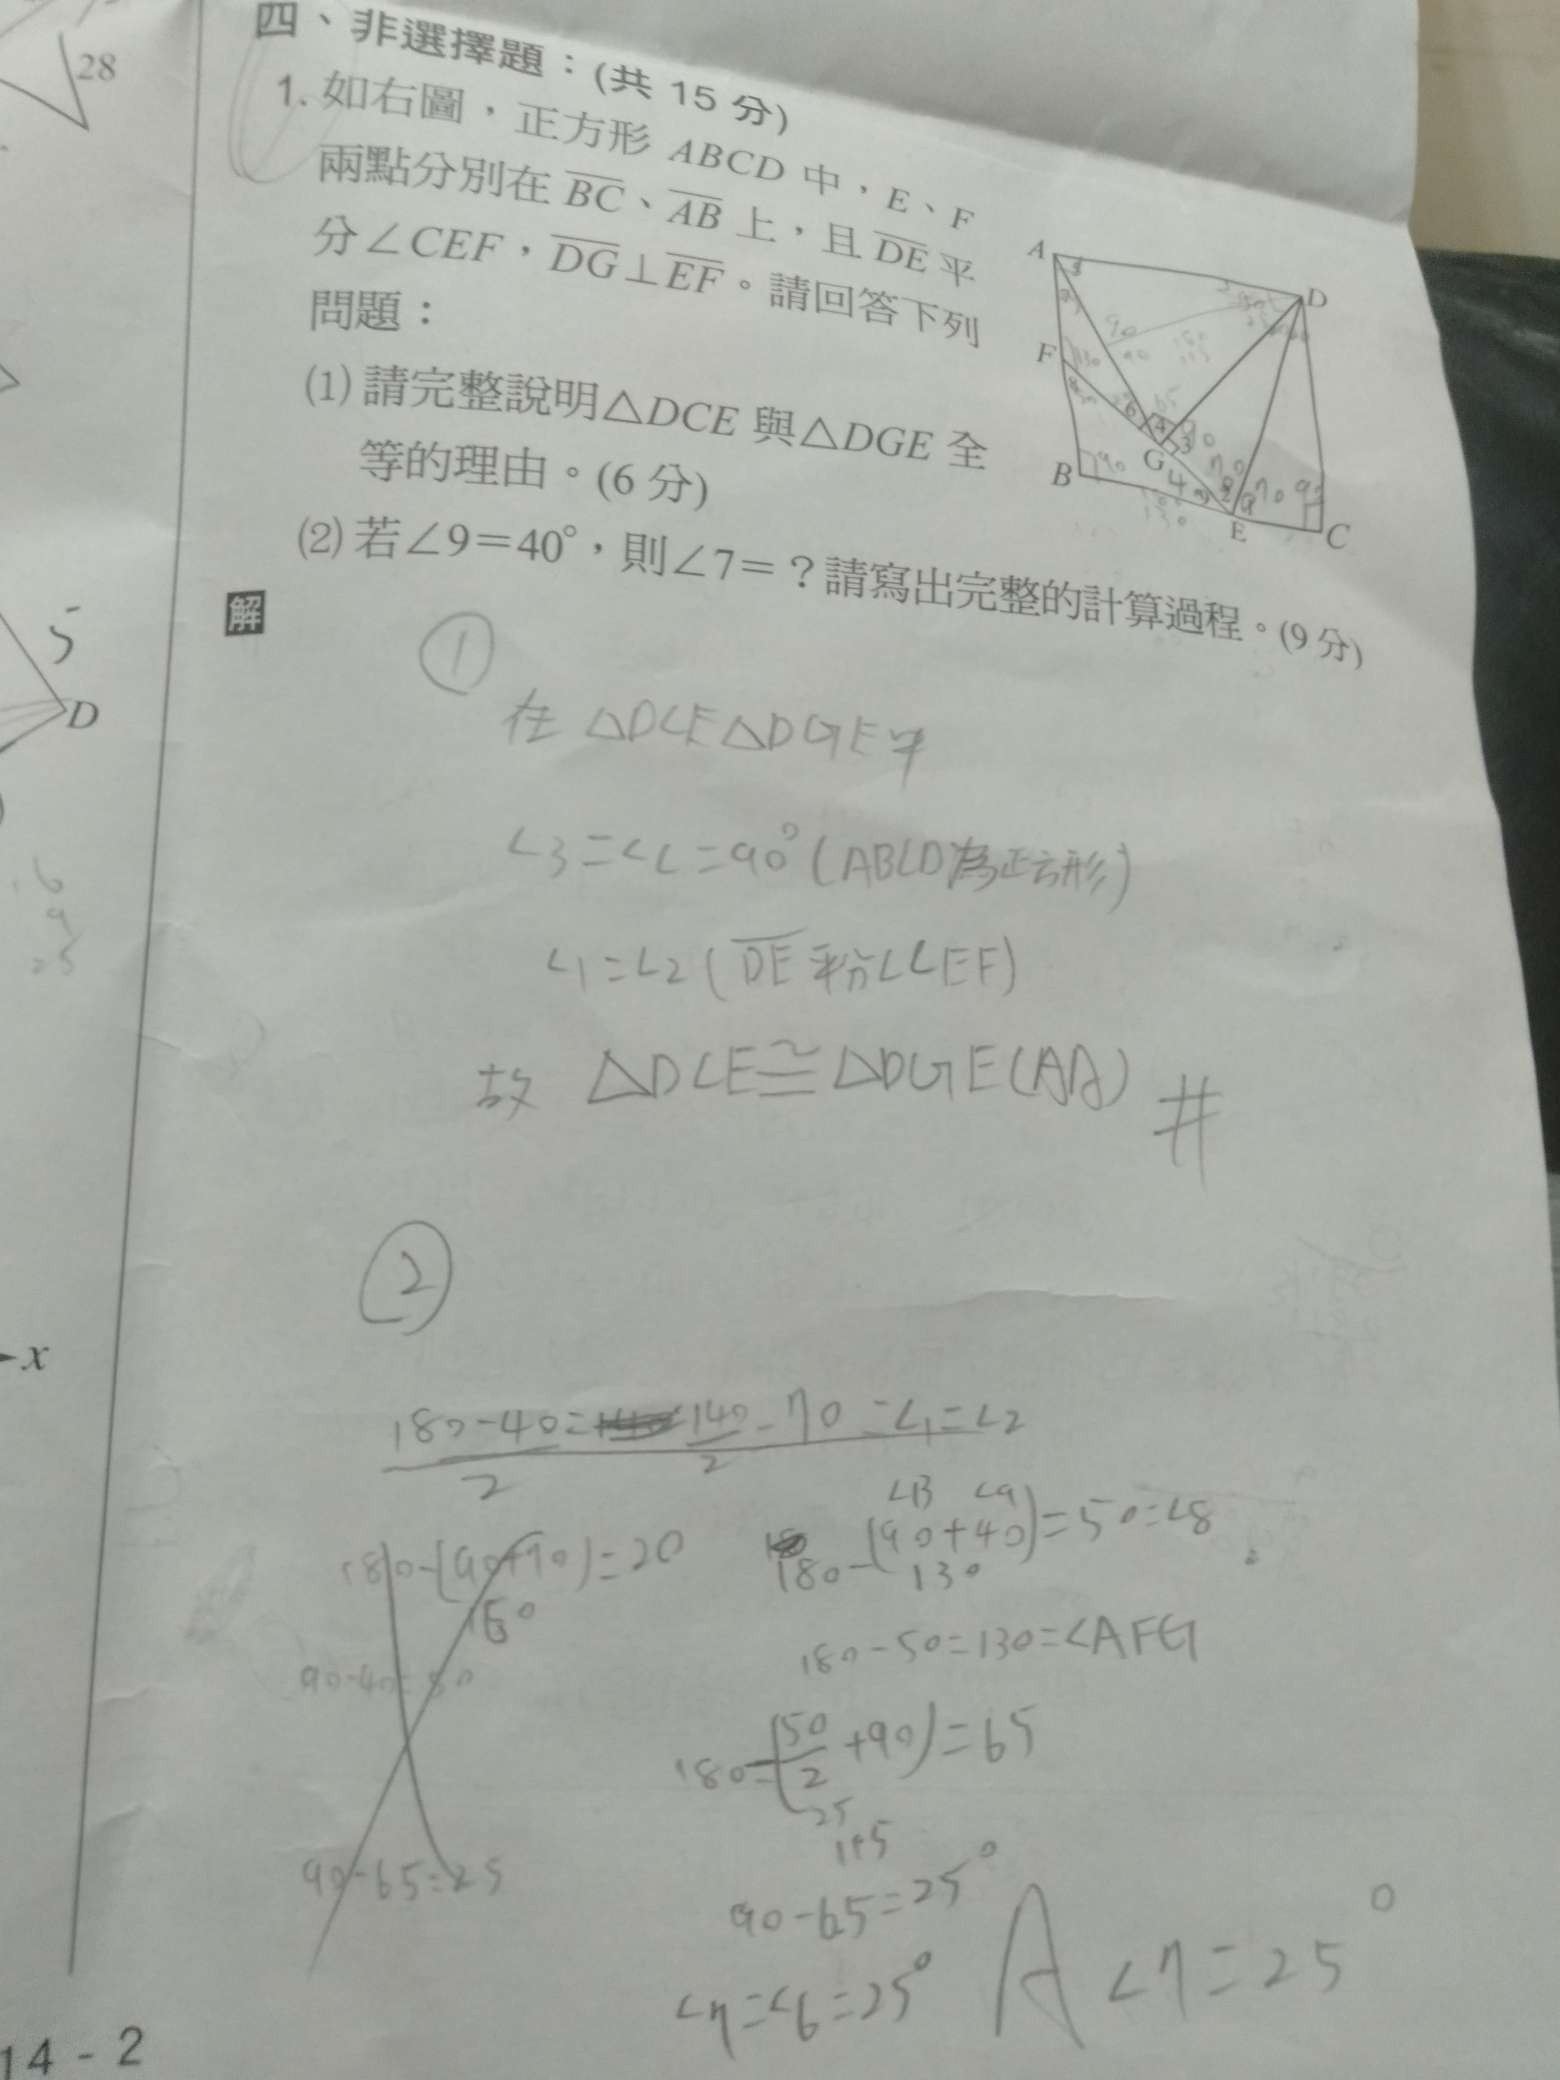 28
5
D
6
9
25
x
14-2
四、非選擇題：(共 15 分)
1. 如右圖，正方形 ABCD 中，E、F
兩點分別在 BC、AB 上，且 DE 平
分∠CEF，DG⊥EF。請回答下列
問題：
(1) 請完整說明△DCE 與△DGE 全
等的理由。(6 分)
(2) 若∠9＝40°，則∠7＝？請寫出完整的計算過程。(9 分)
A
D
F
B
G
E
C
解
①
在 △DCE △DGE 中
∠3=∠C=90°(ABCD為正方形)
∠1=∠2(DE平分∠CEF)
故 △DCE≅△DGE(AA) #
②
180-40/2=140/2=70=∠1=∠2
180-(90+70)=20
∠B ∠9
180-(90+40)=50=∠8
130
90-40=50
180-50=130=∠AFG
180-(50/2+90)=65
25
115
90-65=25
90-65=25°
∠7=∠6=25°
A ∠7=25°